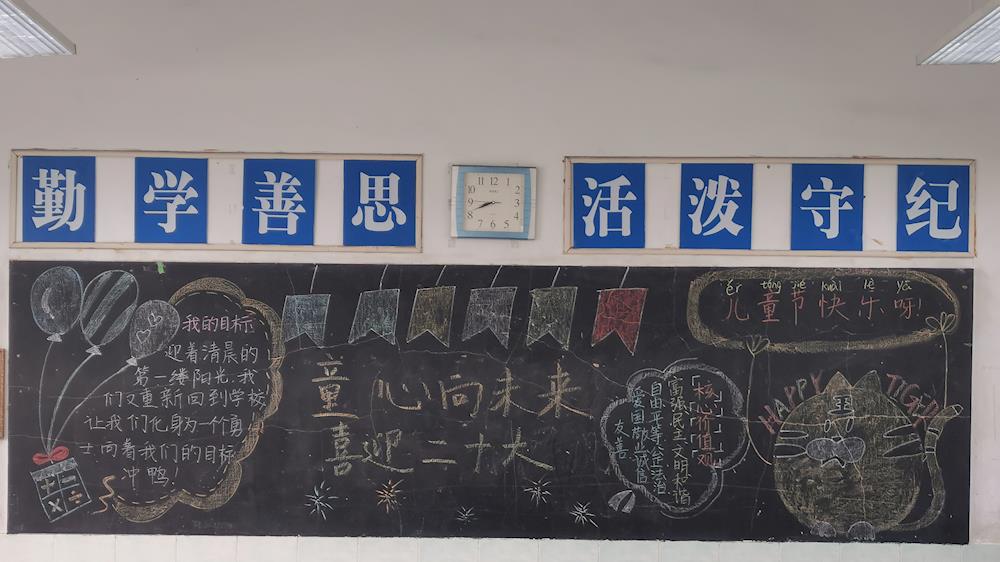 勤学善思
活泼守纪
11 12 1
10 2
9 3
8 4
7 6 5
我的目标
迎着清晨的
第一缕阳光，我
们又重新回到学校
让我们化身为一个勇
士向着我们的目标
冲鸭！
童心向未来
喜迎二十大
「核心价值观」
富强民主文明和谐
自由平等公正法治
爱国敬业诚信
友善
ér tóng jié kuài lè ya
儿童节快乐呀！
HAPPY TIGER
王